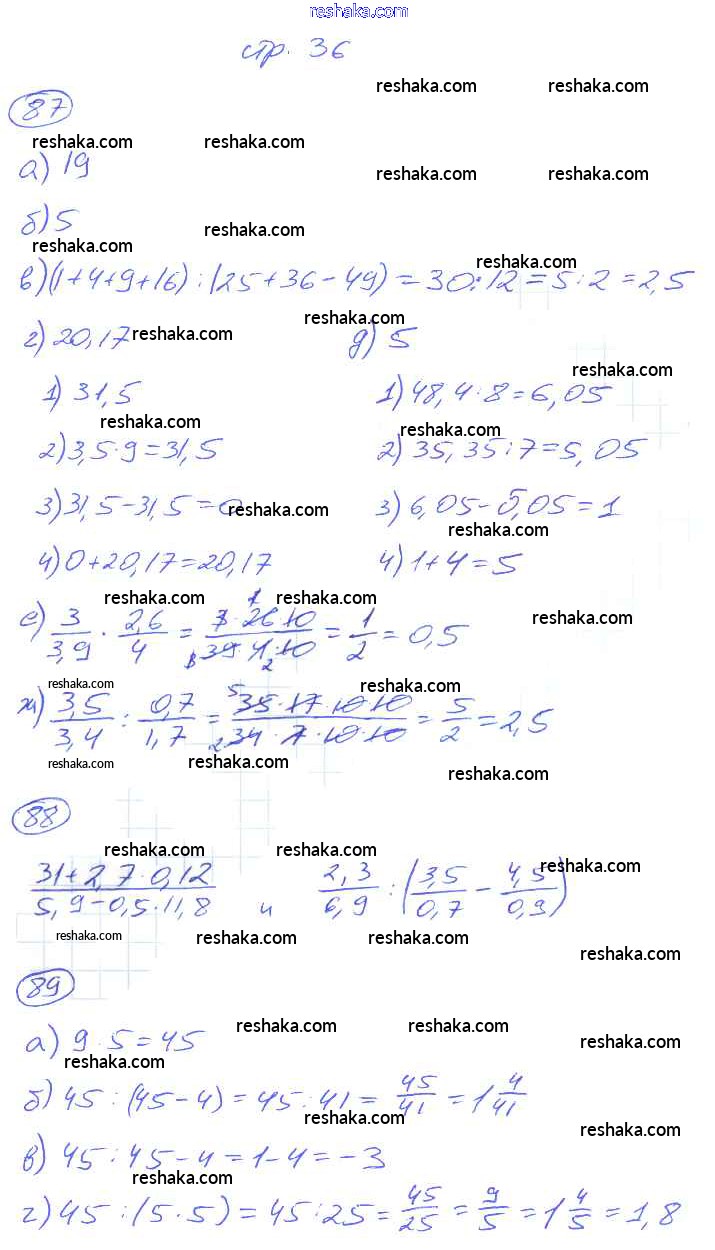 www.reshaka.com
стр. 36
reshaka.com reshaka.com
87
reshaka.com reshaka.com
а) 19
reshaka.com reshaka.com
б) 5
reshaka.com
reshaka.com
reshaka.com
в) (1+4+9+16) : (25+36-49) = 30:12 = 5:2 = 2,5
reshaka.com
г) 20,17 reshaka.com д) 5
reshaka.com
1) 31,5 1) 48,4:8=6,05
reshaka.com reshaka.com
2) 3,5·9=31,5 2) 35,35:7=5,05
3) 31,5-31,5=0 3) 6,05-5,05=1
reshaka.com
reshaka.com
4) 0+20,17=20,17 4) 1+4=5
reshaka.com reshaka.com
reshaka.com
е) 3/3,9 · 2,6/4 = 3·26·10/39·4·10 = 1/2 = 0,5
reshaka.com reshaka.com
ж) 3,5/3,4 : 0,7/1,7 = 35·17·10·10/34·7·10·10 = 5/2 = 2,5
reshaka.com reshaka.com reshaka.com
88
reshaka.com reshaka.com
reshaka.com
31+2,7·0,12/5,9-0,5·11,8 и 2,3/6,9 : (3,5/0,7 - 4,5/0,9)
reshaka.com reshaka.com reshaka.com
reshaka.com
89
reshaka.com reshaka.com
а) 9·5=45 reshaka.com
reshaka.com
б) 45 : (45-4) = 45:41 = 45/41 = 1 4/41
reshaka.com
reshaka.com
в) 45:45-4=1-4=-3
reshaka.com
г) 45 : (5·5) = 45:25 = 45/25 = 9/5 = 1 4/5 = 1,8
reshaka.com reshaka.com